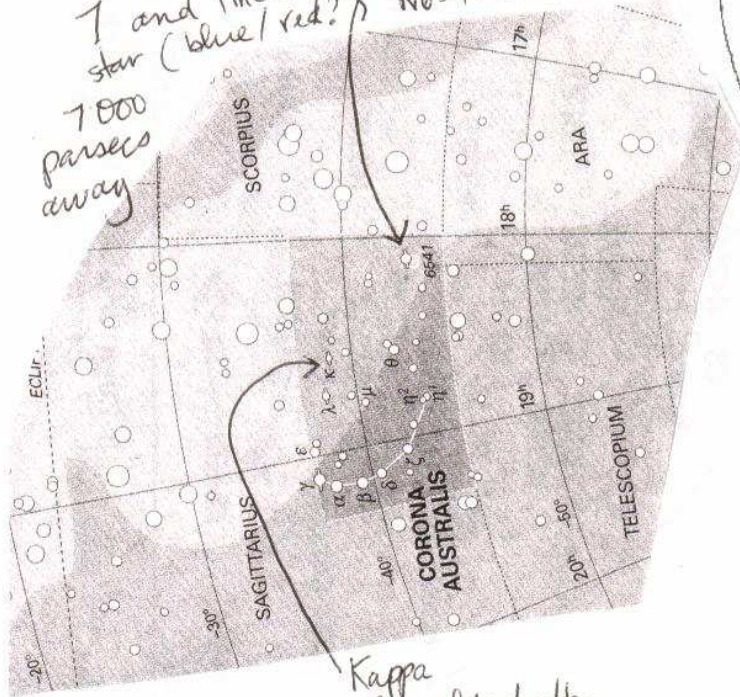 7 and
star (blue/red?
7000
parsecs
away
17h
SCORPIUS
ARA
18h
6541
ECLIP.
κ
θ
λ
μ
η²
η¹
19h
ε
γ
α
β
δ
ζ
SAGITTARIUS
CORONA
AUSTRALIS
TELESCOPIUM
-20°
-30°
-40°
-50°
20h
Kappa